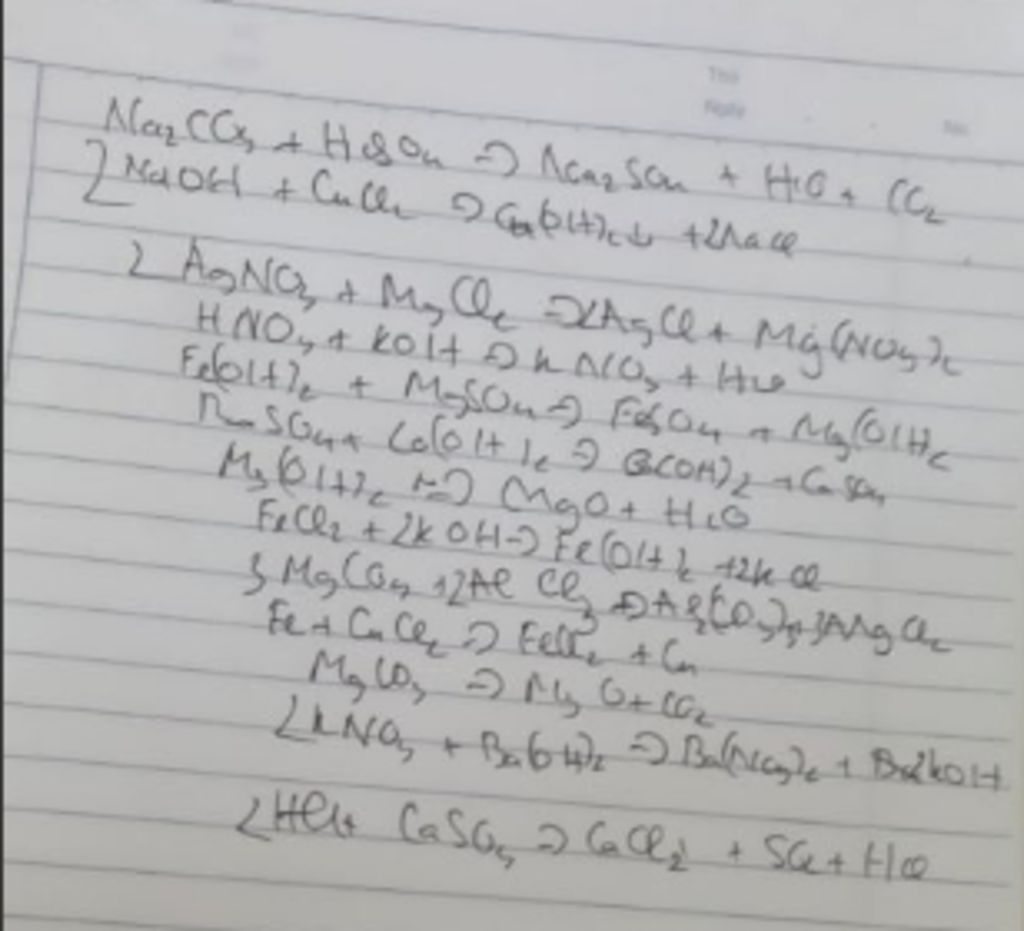 Title
Date
No.
Na₂CO₃ + H₂SO₄ => Na₂SO₄ + H₂O + CO₂
2NaOH + CuCl₂ => Cu(OH)₂↓ + 2NaCl
2 AgNO₃ + MgCl₂ => 2AgCl + Mg(NO₃)₂
HNO₃ + KOH => KNO₃ + H₂O
Fe(OH)₂ + MgSO₄ => FeSO₄ + Mg(OH)₂
SO₄ + Ca(OH)₂ => (OH)₂ + CaSO₄
Mg(OH)₂ => MgO + H₂O
FeCl₂ + 2KOH => Fe(OH)₂ + 2KCl
3MgCO₃ + 2AlCl₃ => Al₂(CO₃)₃ + 3MgCl₂
Fe + CuCl₂ => FeCl₂ + Cu
MgCO₃ => MgO + CO₂
2KNO₃ + Ba(OH)₂ => Ba(NO₃)₂ + 2KOH
2HCl + CaSO₃ => CaCl₂ + SO₂ + H₂O